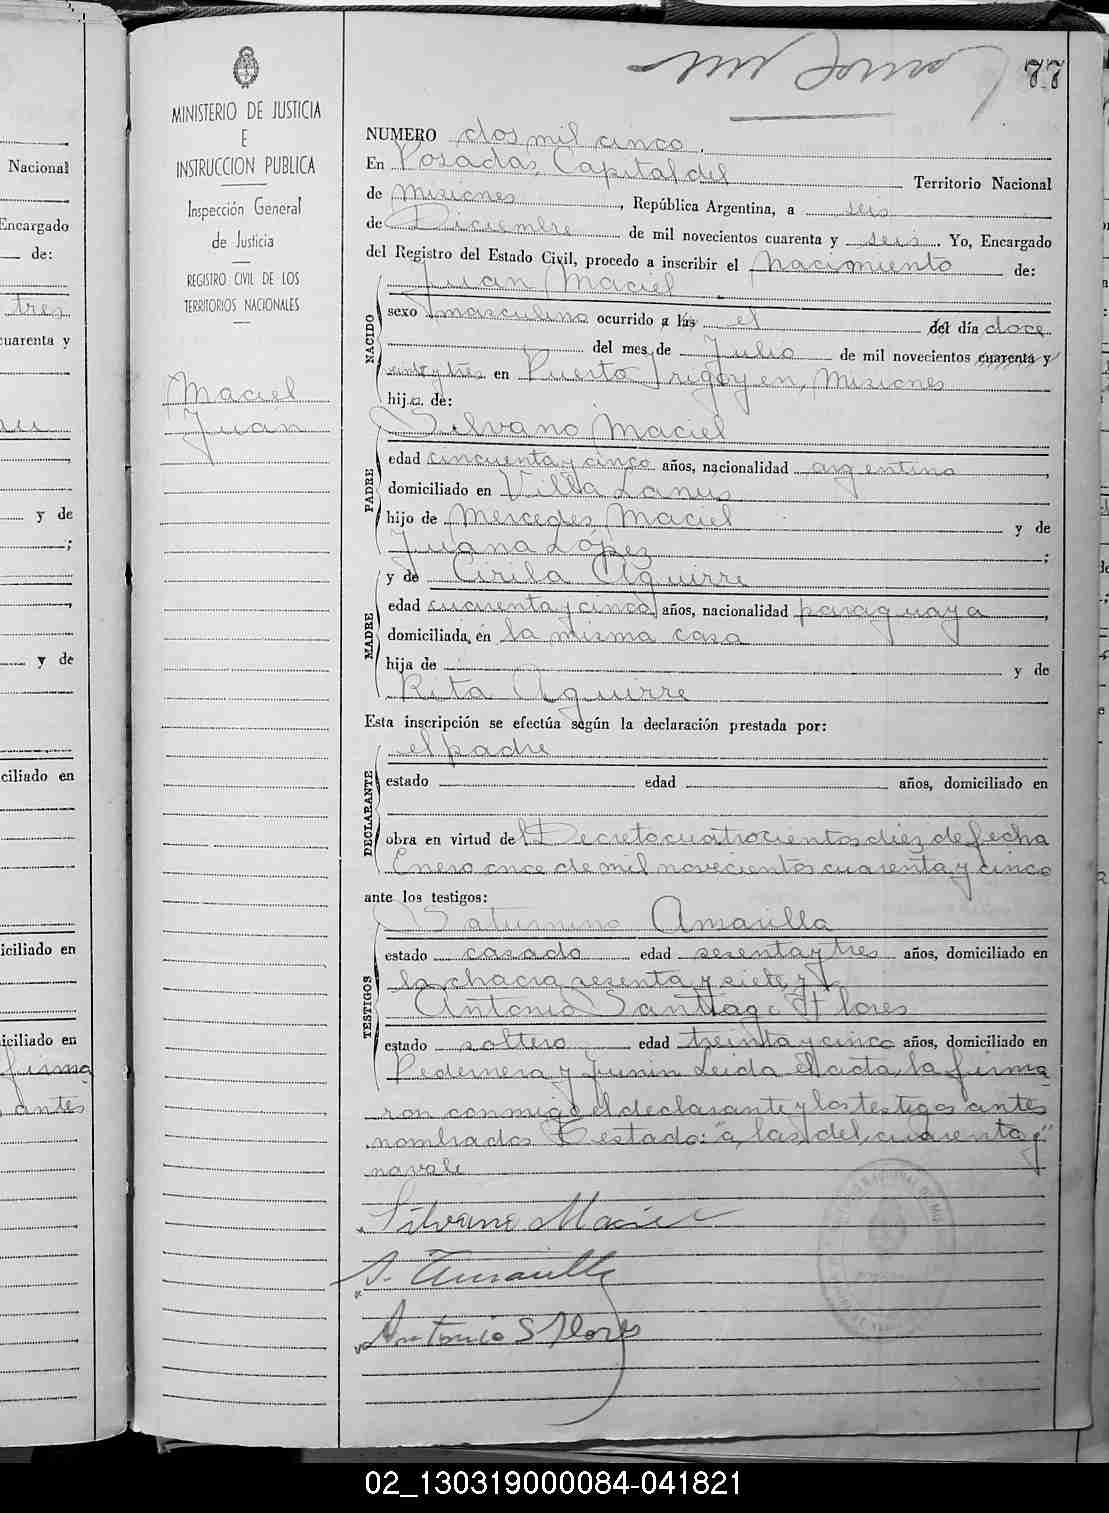 77
MINISTERIO DE JUSTICIA
E
INSTRUCCION PUBLICA
Inspección General
de Justicia
REGISTRO CIVIL DE LOS
TERRITORIOS NACIONALES
Maciel
Juan
NUMERO dos mil cinco.
En Posadas, Capital del Territorio Nacional
de Misiones, República Argentina, a seis
de Diciembre de mil novecientos cuarenta y seis. Yo, Encargado
del Registro del Estado Civil, procedo a inscribir el nacimiento de:
Juan Maciel
NACIDO
sexo masculino ocurrido a las el del día doce
del mes de Julio de mil novecientos cuarenta y
veinte y tres en Puerto Irigoyen, Misiones
hijo de:
Silvano Maciel
PADRE
edad cincuenta y cinco años, nacionalidad argentino,
domiciliado en Villa Lanus
hijo de Mercedes Maciel y de
Juana López;
y de Cirila Aguirre
MADRE
edad cuarenta y cinco años, nacionalidad paraguaya,
domiciliada en la misma casa
hija de y de
Rita Aguirre
Esta inscripción se efectúa según la declaración prestada por:
el padre
DECLARANTE
estado edad años, domiciliado en
obra en virtud del Decreto cuatrocientos diez de fecha
Enero once de mil novecientos cuarenta y cinco
ante los testigos:
Saturnino Amarilla
TESTIGOS
estado casado edad sesenta y tres años, domiciliado en
la chacra sesenta y siete, y
Antonio Santiago Flores
estado soltero edad treinta y cinco años, domiciliado en
Pedernera y Junin Leida el acta, la firma
ron conmigo el declarante y los testigos antes
nombrados Testado: "a, las, del, cuarenta y"
no vale
Silvano Maciel
S. Amarilla
Antonio S Flores
Nacional
Encargado
de:
tres
cuarenta y
y de
y de
ciliado en
iciliado en
iciliado en
firma
antes
02_130319000084-041821